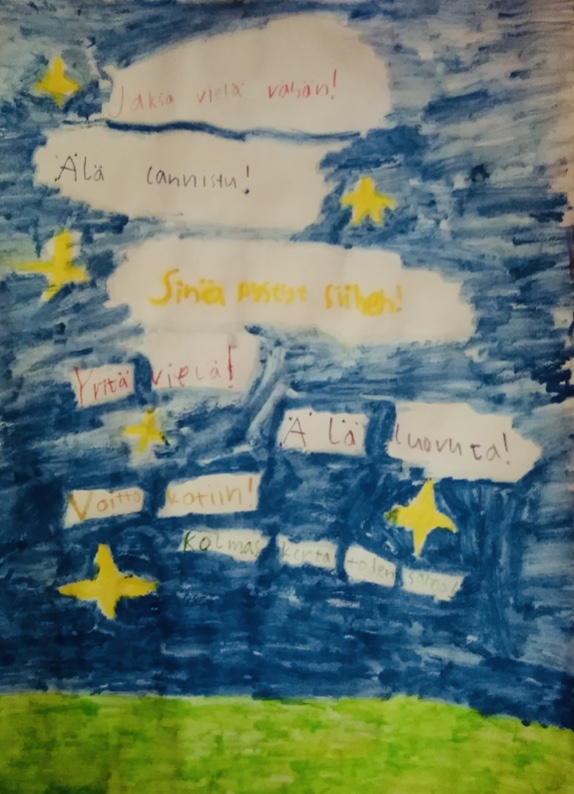 Jaksa vielä vähän!
Älä lannistu!
Sinä pystyt siihen!
Yritä vielä!
Älä luovuta!
Voitto kotiin!
Kolmas kerta toden sanoo!